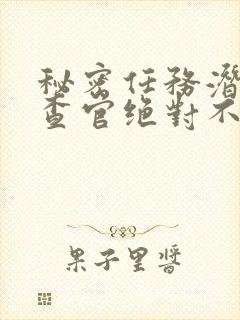 秘密任務潛
查官绝對不
果子里醬